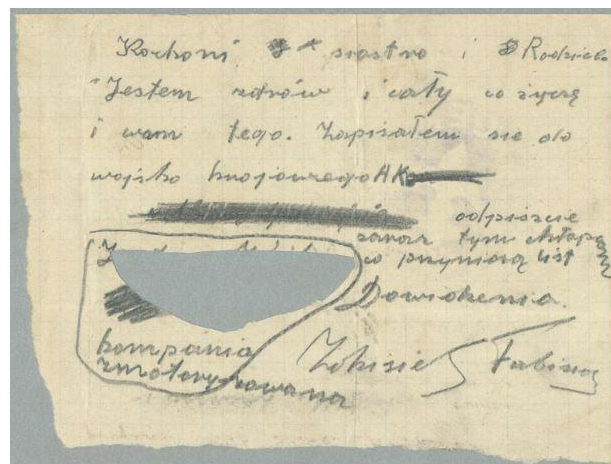 Kochani siostro i Rodzice
Jestem zdrów i cały co życzę
i wam tego. Zapisałem sie do
wojska krajowego AK
odpiszcie
zaraz tym chłopcą
co przyniosą list
Dowidzenia.
kompania
zmotoryzowana
Zdzisie